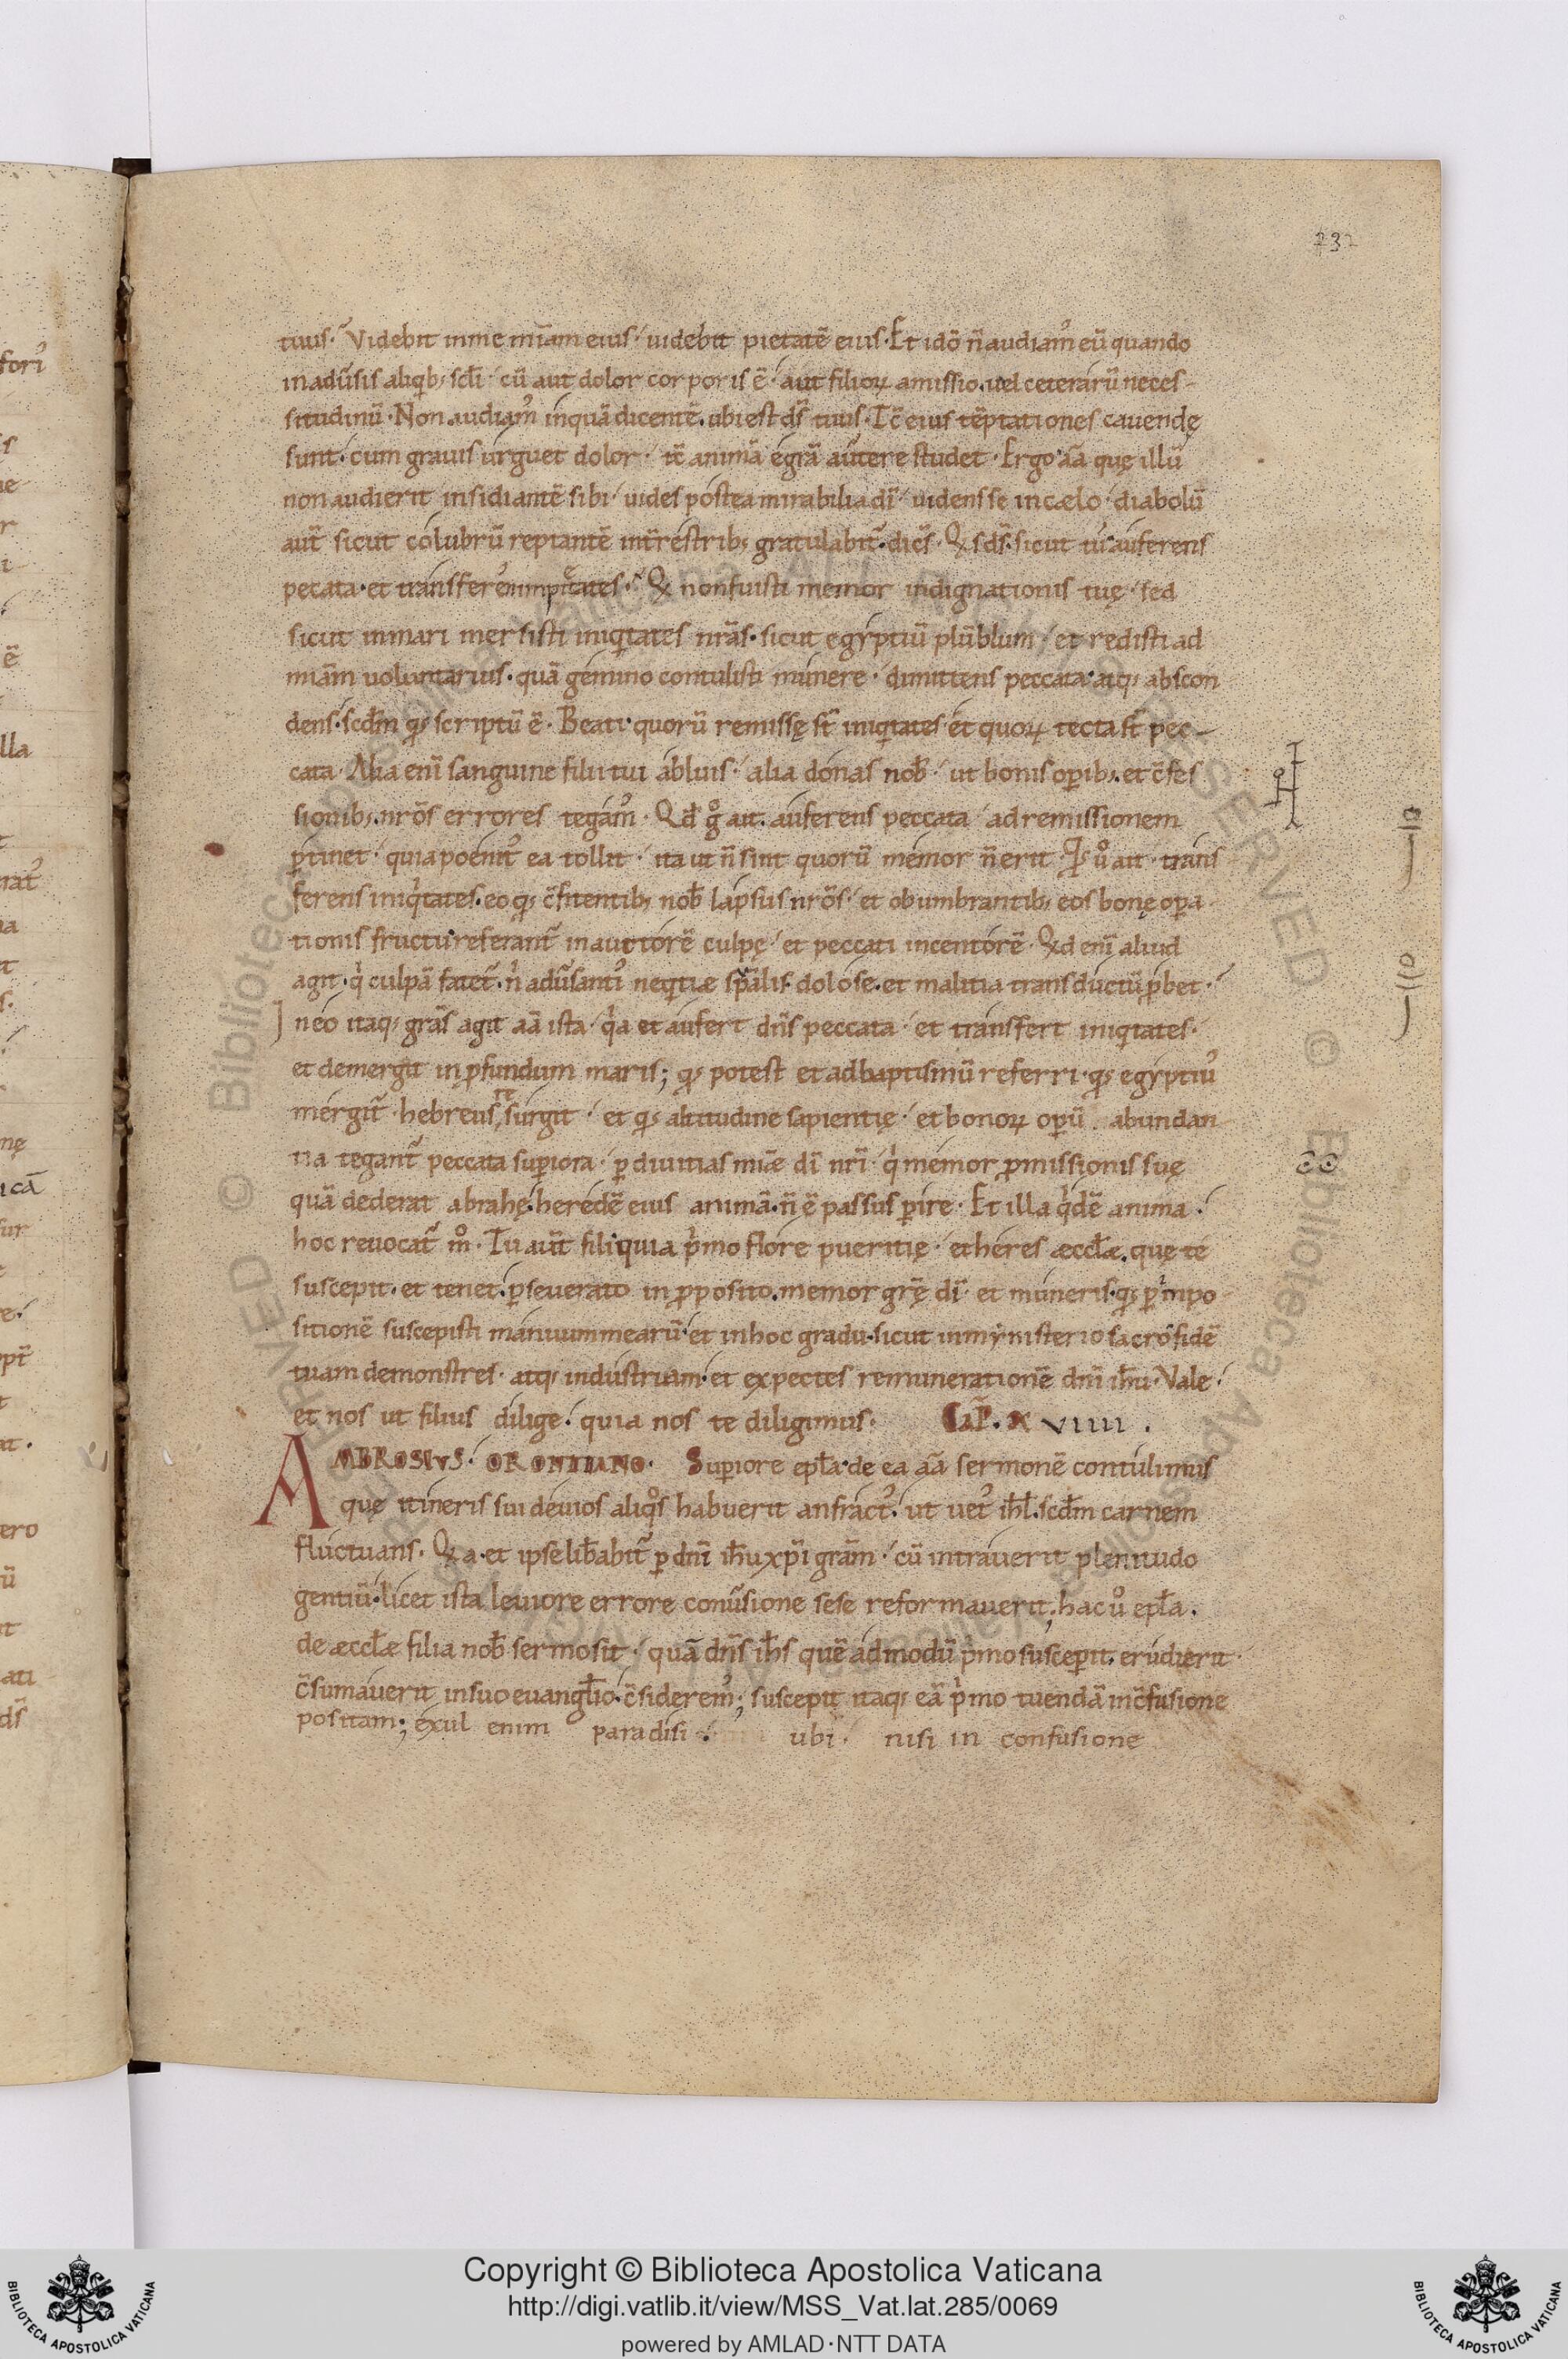 232
tuus· Videbit in me mīam eius· uidebit pietatē eius· Et idō n̄ audiam᷒ eū quando
in adũsis aliqb; scl̄i· cū aut dolor corporis ē· aut filioꝝ amissio· uel ceterarū neces-
situdinū· Non audiam᷒ inquā dicentē· ubi est ds̄ tuus· Tc̄ eius tēptationes cauendę
sunt· cum grauis urguet dolor· tc̄ animā egrā aũtere studet· Ergo aā quę illū
non audierit insidiantē sibi· uides postea mirabilia dī· uidens se in cælo· diabolū
aūt sicut colubrū reptantē int̄restrib; gratulabit᷑· dic̄s· Qs ds̄ sicut tu· auferens
peccata· et transferens impietates· Q nonfuisti memor indignationis tuę· sed
sicut in mari mersisti iniqtates nrās· sicut egyptiū plūblum· et redisti ad
mīam uoluntarius· quā gemino contulisti munere· dimittens peccata· atq; abscon
dens· scdm̄ qđ scriptū ē· Beati quorū remissę st̄ iniqtates· et quoꝝ tecta st̄ pec-
cata· Alia enī sanguine filii tui abluis· alia donas nob̄· ut bonis oꝑib;· et c̄fes
sionib;· nrōs errores tegam᷒· Qđ gͦ ait· auferens peccata· ad remissionem
ꝑtinet· quia poenit᷒ ea tollit· ita ut n̄ sint quorū memor n̄ erit· Qđ uͦ ait· trans
ferens iniqtates· eo qđ c̄fitentib; nob̄ lapsus nrōs· et obumbrantib; eos bonę oꝑa
tionis fructu referant᷑ in auctorē culpę· et peccati incentorē· Qd enī aliud
agit· qͥ culpā fatet᷑· nͥ adũsanti᷒ neqtiæ spālis dolose· et malitia transductū p̄bet·
neo itaq; grās agit aā ista· qͥa et aufert dn̄s peccata· et transfert iniqtates·
et demergit in ꝓfundum maris; qđ potest et ad baptismū referri· qđ egyptiu᷒
mergit᷑· hebreus resurgit· et qđ altitudine sapientię· et bonoꝝ oꝑū abundan
tia tegant᷑ peccata suꝑiora· ꝑ diuitias mīæ dī nrī· qͥ memor ꝓmissionis suę
quā dederat abrahę· heredē eius animā· n̄ ē passus ꝑire· Et illa qͥdē anima·
hoc reuocat᷑ mͦ· Tu aūt fili quia pͥmo flore pueritię· et heres æccl̄æ· quę te
suscepit· et tenet· ꝑseuerato in ꝓposito· memor grę̄ dī· et muneris· qđ ꝑ inpo
sitionē suscepisti manuum mearū· et in hoc gradu· sicut in mynisterio sacro fidē
tuam demonstres· atq; industriam· et expectes remunerationē dnī ih̄u· Vale·
et nos ut filius dilige· quia nos te diligimus· CAP̄. X VIIII .
AMBROSIVS· ORONTIANO· Suꝑiore epl̄a· de ea aā sermonē contulimus
quę itineris sui deuios aliqͦs habuerit anfract᷒· ut uet᷒ ih̄l· scdm̄ carnem
fluctuans· Qa· et ipse lib̄abit᷑ ꝑ dnī ih̄u xp̄i grām· cū intrauerit plenitudo
gentiū· licet ista leuiore errore conũsione sese reformauerit; hac uͦ epl̄a·
de æccl̄æ filia nob̄ sermo sit· quā dn̄s ih̄s quē admodū pͥmo susceꝑit· erudierit·
c̄sumauerit in suo euangl̄io· c̄siderem᷒; suscepit itaq; eā pͥmo tuendā in c̄fusione
positam; exul enim paradisi· ubi· nisi in confusione
Copyright © Biblioteca Apostolica Vaticana
http://digi.vatlib.it/view/MSS_Vat.lat.285/0069
powered by AMLAD·NTT DATA
BIBLIOTECA APOSTOLICA VATICANA
BIBLIOTECA APOSTOLICA VATICANA